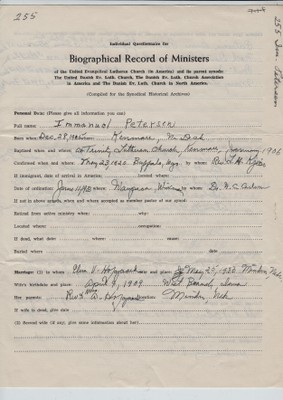 255
255 Imm. Petersen
Individual Questionnaire for
Biographical Record of Ministers
of the United Evangelical Lutheran Church (in America) and its parent synods:
The United Danish Ev. Luth. Church, The Danish Ev. Luth. Church Association
in America and The Danish Ev. Luth. Church in North America.
(Compiled for the Synodical Historical Archives)
Personal Item: (Please give all information you can)
Full name: Immanuel PETERSEN
Born when: Dec. 28, 1905 where: Kenmare, N. Dak
Baptized when and where: Trinity Lutheran Church, Kenmare, 1906
Confirmed when and where: May 23, 1920 Buffalo, Wyo. by whom: Rev.
If immigrant, date of arrival in America: located where:
Date of ordination: June where: by whom: Dr. N. C. Carlsen
If not in above synods, when and where accepted as member pastor of our synod:
Retired from active ministry when: why:
Located where:
occupation:
If dead, what date: where: must:
Buried where: date:
Marriage: (1) to whom: date and place: May 27, 1930 Minden, Neb.
Wife's birthdate and place: April 9, 1909 West Branch, Iowa
Her parents: Rev. location: Minden, Neb.
If wife is dead, give date
(2) (Second wife (if any, give more information about her)